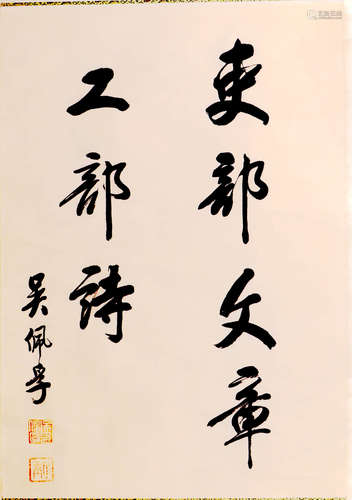 吏部文章
工部詩
吴佩孚